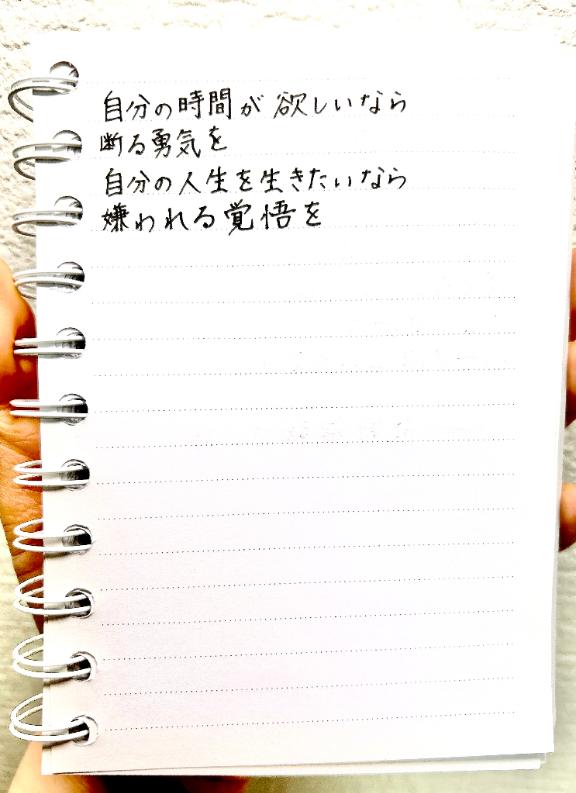 自分の時間が欲しいなら
断る勇気を
自分の人生を生きたいなら
嫌われる覚悟を